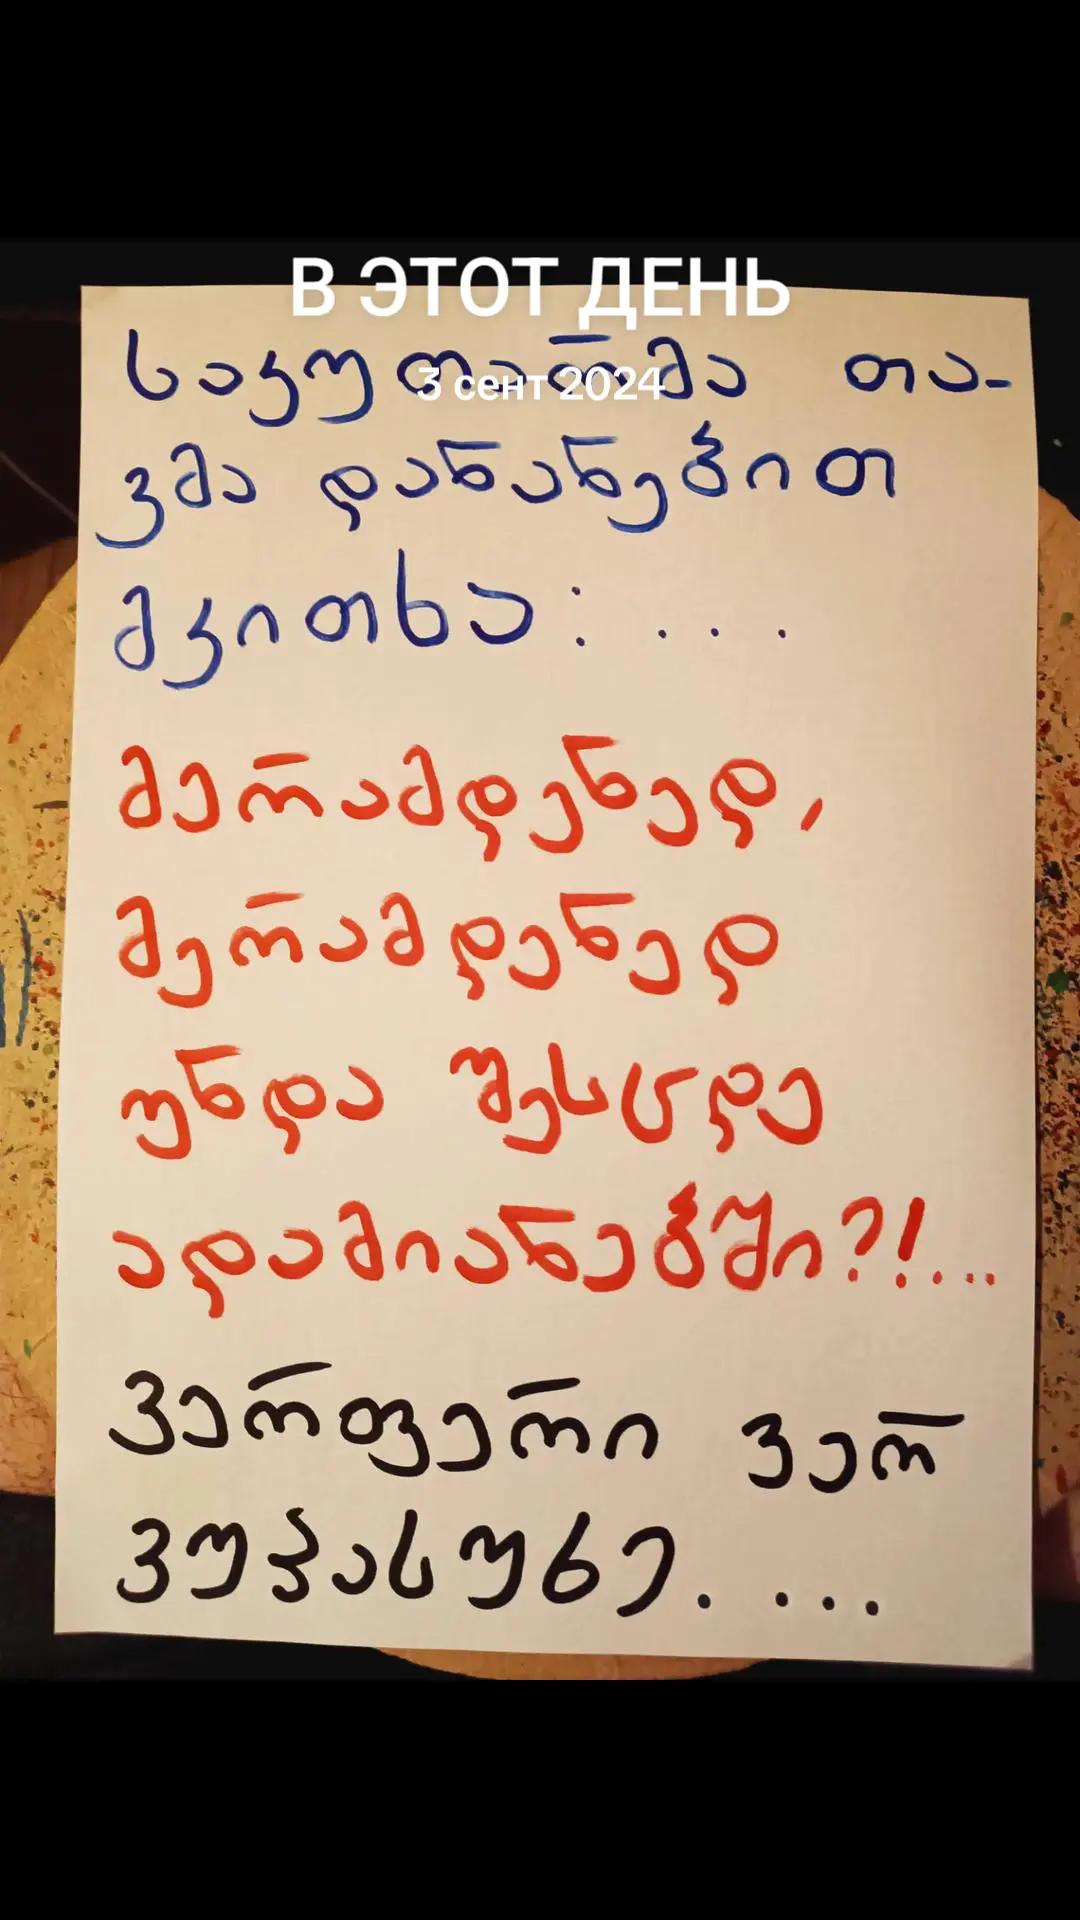 В ЭТОТ ДЕНЬ
საკუთარმა თა-
3 сент 2024
ვმა დანანებით
მკითხა: ...
მერამდენედ,
მერამდენედ
უნდა შესცდე
ადამიანებში?!...
ვერფერი ვერ
ვუპასუხე. ...